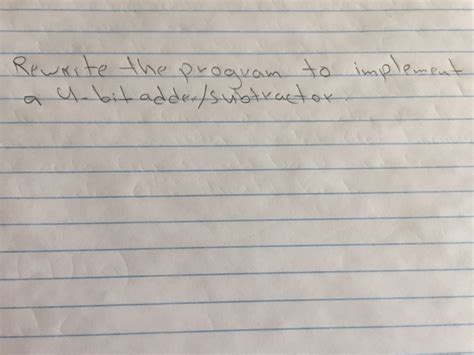 Rewrite the program to implement
a 4-bit adder/subtractor.